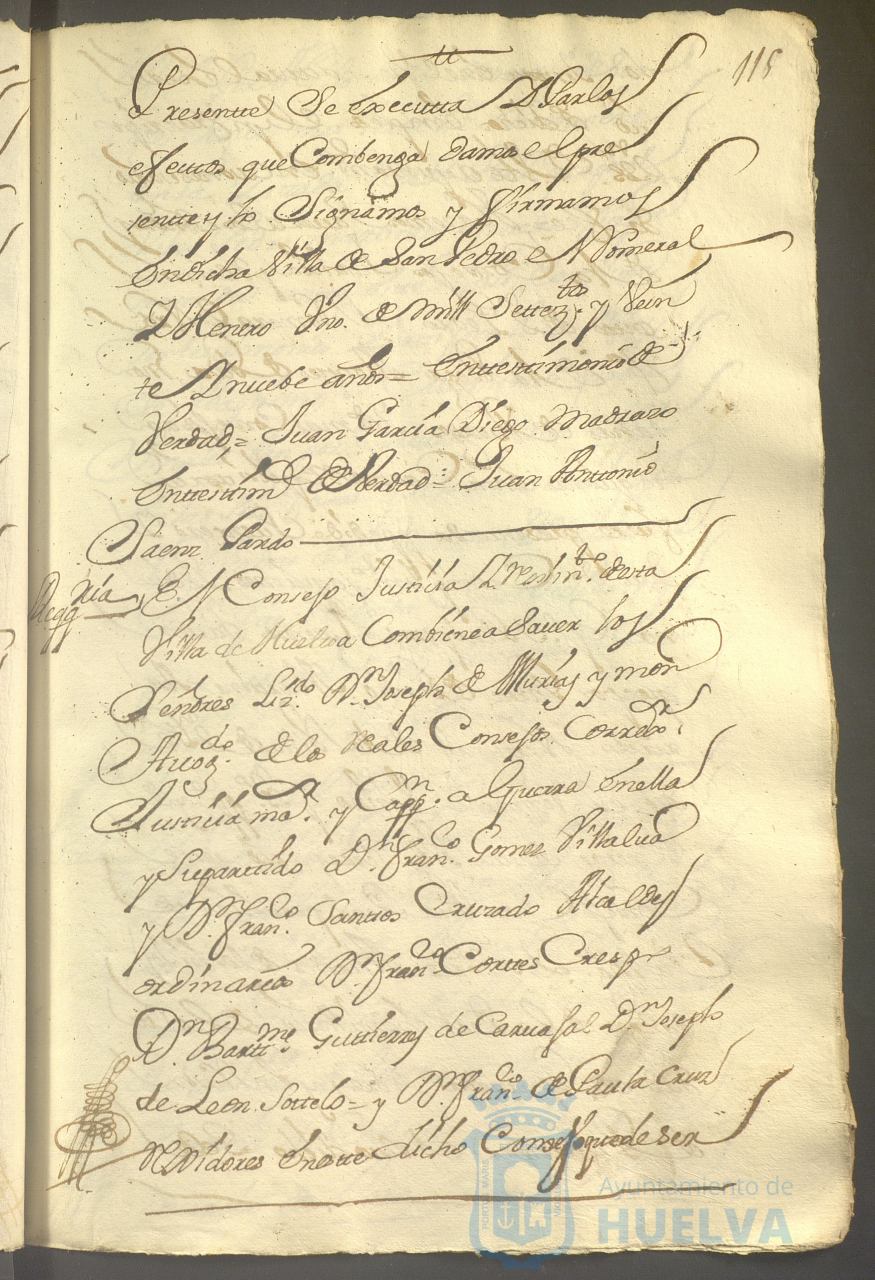 115
Presente Se executta D Carlos
efectos que Combenga damos el pre
sentte y lo Signamos y firmamos
En dicha Villa de San Pedro e Romeral
Henero Uno. de mill Settez.tos y Vein
te Nuebe años = En ttestimonio de
Verdad = Juan Garcia Diego Madrazo
En ttestim.o de Verdad = Juan Antonio
Saenz Pardo
El Consejo Justicia Y Rejim.to desta
Villa de Huelva Combiene a Saver los
Señores Liz.do D.n Joseph de Murias y mon
Avog.do de los Reales Consejos Corred.r
Justicia ma.r y Capp.n a Guerra En ella
y Su partido D.n Fran.co Gomez Villalva
y D.n Fran.co Santtos Cruzado Alcaldes
ordinarios D.n Fran.co Corttes Crespo
D.n Bartt.me Guttierres de Carvajal D.n Joseph
de Leon Sottelo = y D.n Fran.co de Paula Cruz
Rexidores En este dicho Consejo que de ser
Ayuntamiento de
HUELVA